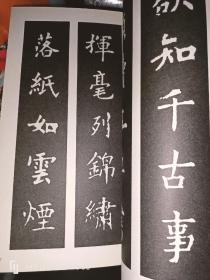 欲知千古事
揮毫列錦繡
落紙如雲煙